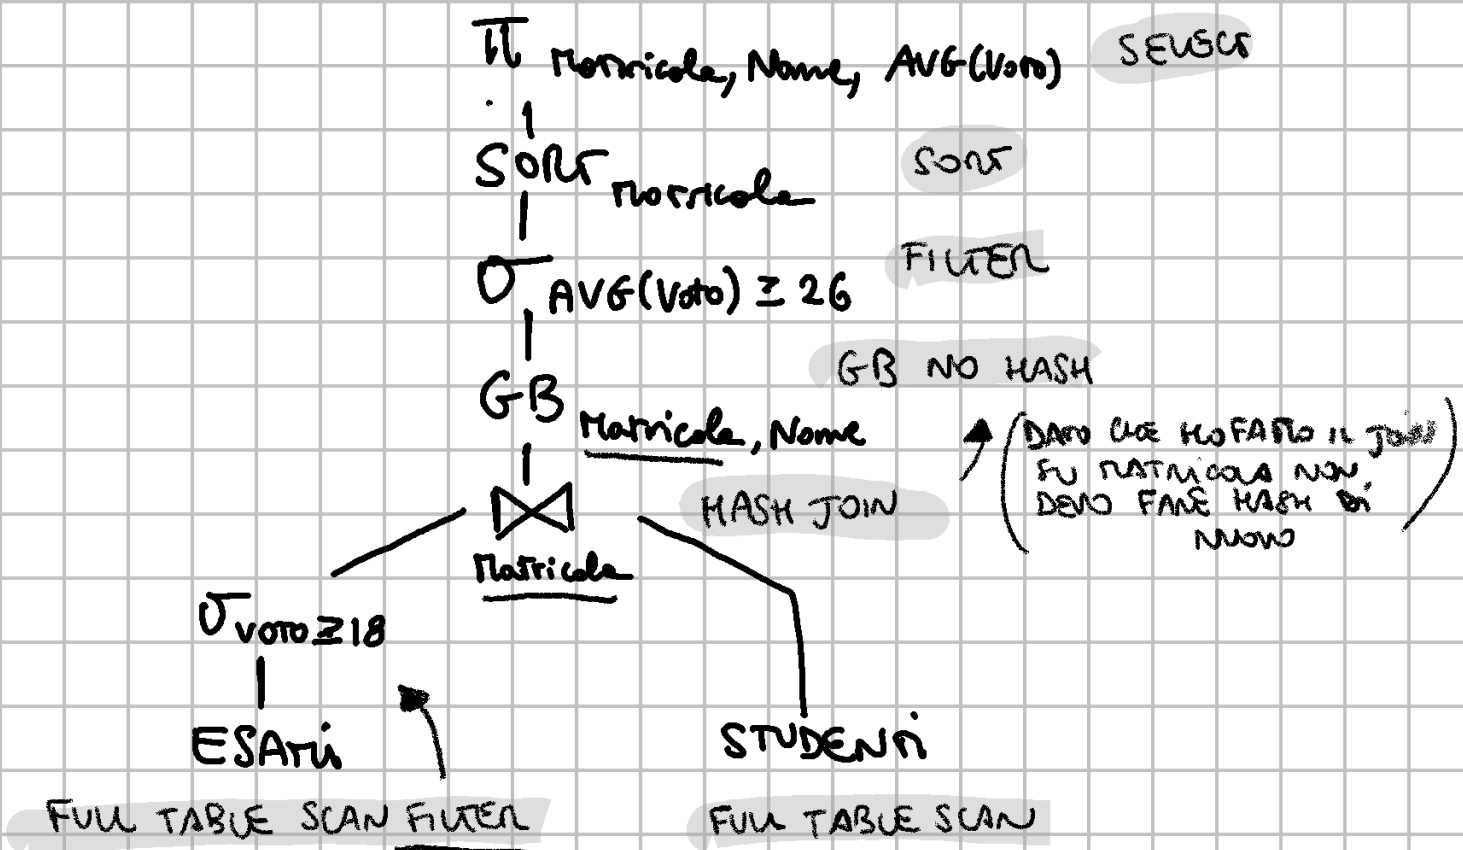 π Matricola, Nome, AVG(Voto) SELECT
SORT Matricola SORT
σ AVG(Voto) ≥ 26 FILTER
GB Matricola, Nome GB NO HASH
(DATO CHE HO FATTO IL JOIN
SU MATRICOLA NON
DEVO FARE HASH DI
NUOVO)
⋈ HASH JOIN
Matricola
σ VOTO ≥ 18
ESAMI STUDENTI
FULL TABLE SCAN FILTER FULL TABLE SCAN